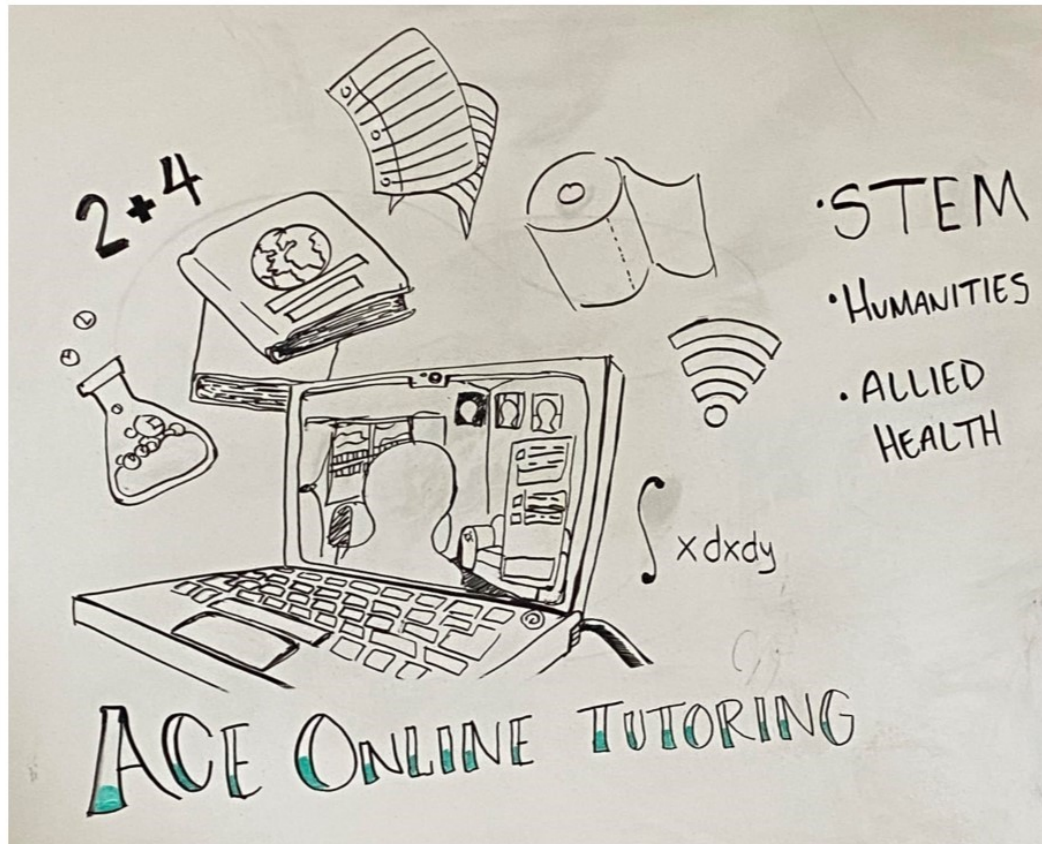 2+4
·STEM
·HUMANITIES
·ALLIED
HEALTH
∫xdxdy
ACE ONLINE TUTORING